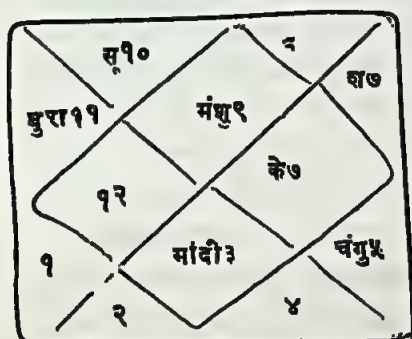 सू१०
श७
बुरा११
मंशु९
के७
१२
मांदी३
चंगु५
१
२
४